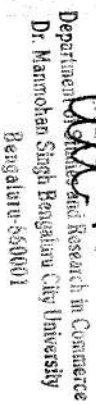 Department of Studies and Research in Commerce
Dr. Manmohan Singh Bengaluru City University
Bengaluru-560001